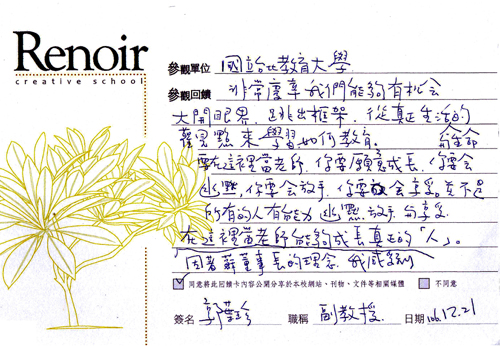 Renoir
creative school
參觀單位 國立台北教育大學
參觀回饋 非常慶幸我們能夠有機會
大開眼界、跳出框架、從真正生活的
觀點來學習如何教育。
要在這裡當老師,你要願意成長,你要會
幽默,你要會放手,你要會享受,真不是
所有的人有能力幽默、放手、享受
在這裡當老師能夠成長真正的「人」。
因著薛董事長的理念,我感受到
同意將此回饋卡內容公開分享於本校網站、刊物、文件等相關媒體 不同意
簽名 職稱 副教授 日期 106.12.21